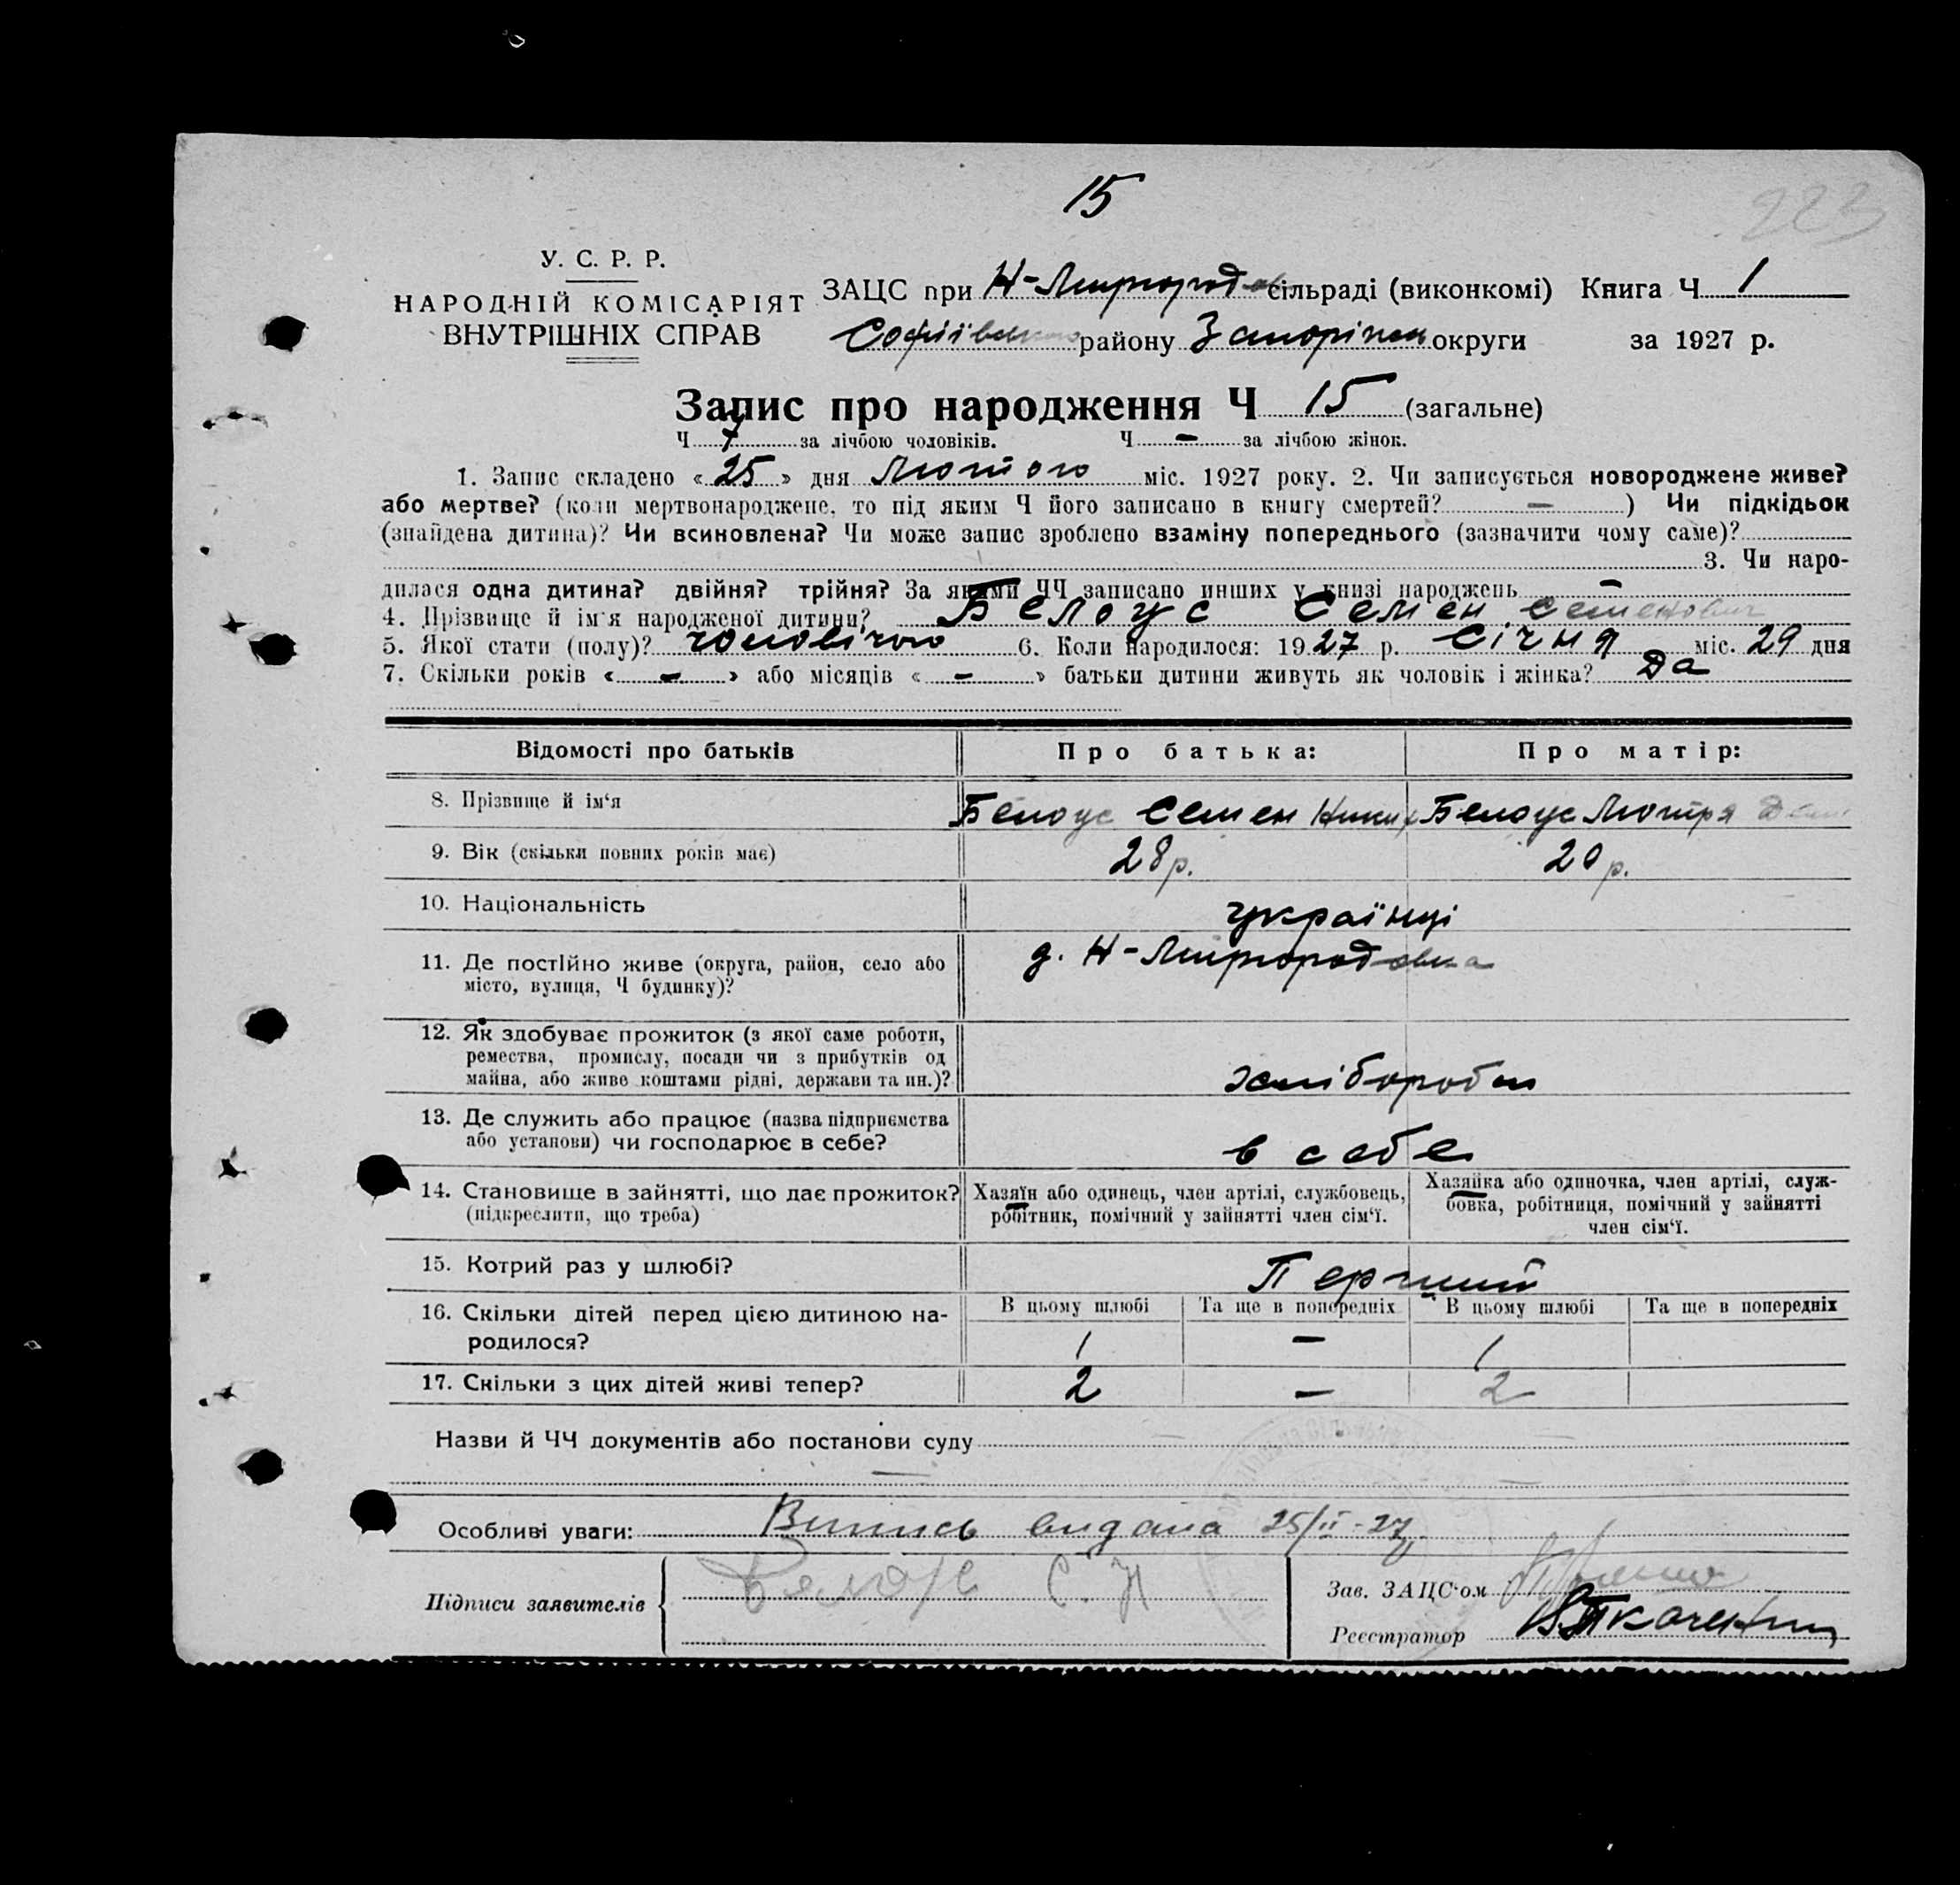 15
223
У. С. Р. Р.
НАРОДНІЙ КОМІСАРІЯТ
ВНУТРІШНІХ СПРАВ
ЗАЦС при Н-Миргородов сільраді (виконкомі) Книга Ч 1
Софіївського району Запоріжск округи за 1927 р.
Запис про народження Ч 15 (загальне)
Ч 7 за лічбою чоловіків. Ч — за лічбою жінок.
1. Запис складено « 25 » дня Лютого міс. 1927 року. 2. Чи записується новороджене живе?
або мертве? (коли мертвонароджене, то під яким Ч його записано в книгу смертей? — ) Чи підкідьок
(знайдена дитина)? Чи всиновлена? Чи може запис зроблено взаміну попереднього (зазначити чому саме)?
3. Чи наро-
дилася одна дитина? двійня? трійня? За якими ЧЧ записано инших у книзі народжень —
4. Прізвище й ім'я народженої дитини? Белоус Семен Семенович
5. Якої стати (полу)? чоловічого 6. Коли народилося: 1927 р. Січня міс. 29 дня
7. Скільки років « — » або місяців « — » батьки дитини живуть як чоловік і жінка? Да
Відомості про батьків Про батька: Про матір:
8. Прізвище й ім'я Белоус Семен Белоус Мотря
9. Вік (скільки повних років має) 28 р. 20 р.
10. Національність українці
11. Де постійно живе (округа, район, село або
місто, вулиця, Ч будинку)? д. Н-Миргородовка
12. Як здобуває прожиток (з якої саме роботи,
ремества, промислу, посади чи з прибутків од
майна, або живе коштами рідні, держави та ин.)? хлібороби
13. Де служить або працює (назва підприємства
або установи) чи господарює в себе? в себе
14. Становище в зайнятті, що дає прожиток?
(підкреслити, що треба)
Хазяїн або одинець, член артілі, службовець,
робітник, помічний у зайнятті член сім'ї.
Хазяйка або одиночка, член артілі, служ-
бовка, робітниця, помічний у зайнятті
член сім'ї.
15. Котрий раз у шлюбі? Перший
16. Скільки дітей перед цією дитиною на-
родилося?
В цьому шлюбі Та ще в попередніх В цьому шлюбі Та ще в попередніх
1 — 1
17. Скільки з цих дітей живі тепер? 2 — 2
Назви й ЧЧ документів або постанови суду
—
Особливі уваги: Випись видана 25/II-27
Підписи заявителів
Зав. ЗАЦС'ом
Реєстратор